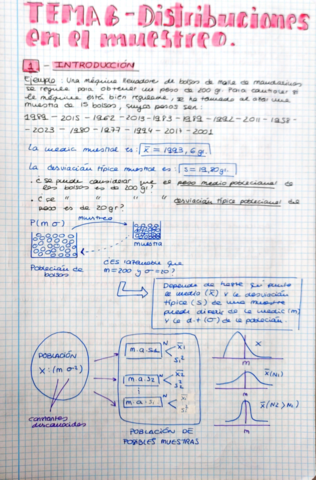 TEMA 6 - Distribuciones
en el muestreo.
1 - INTRODUCCIÓN
Ejemplo: Una máquina llenadora de bolsas de de mandarinas
se regula para obtener un peso de 200 g. Para controlar si
la máquina está bien regulada, se ha tomado al azar una
muestra de 15 bolsas, cuyos pesos son:
1989 - 2015 - 1962 - 2013 - 1983 - 1989 - 1992 - 2011 - 1938 -
- 2023 - 1980 - 1977 - 1994 - 2017 - 2001
La media muestral es: x̄ = 1993,6 g.
La desviación típica muestral es: s = 19,20 g.
· ¿Se puede considerar que el peso medio poblacional de
las bolsas es de 200 gr?
· ¿Se " " " " desviación típica poblacional del
peso es de 20 gr?
P(m σ)
muestreo
muestra
Población de
bolsas
¿Es razonable que
m = 200 y σ = 10?
Depende de hasta qué punto
la media (x̄) y la desviación
típica (s) de una muestra
puede diferir de la media (m)
y la d.t (σ) de la población
POBLACIÓN
X: (m σ²)
constantes
desconocidas
m.a.s 1 N x̄1 s1²
m.a.s 2 N x̄2 s2²
m.a.s i N x̄i si²
POBLACIÓN DE
POSIBLES MUESTRAS
X
m
x̄ (N1)
m
x̄ (N2 > N1)
m